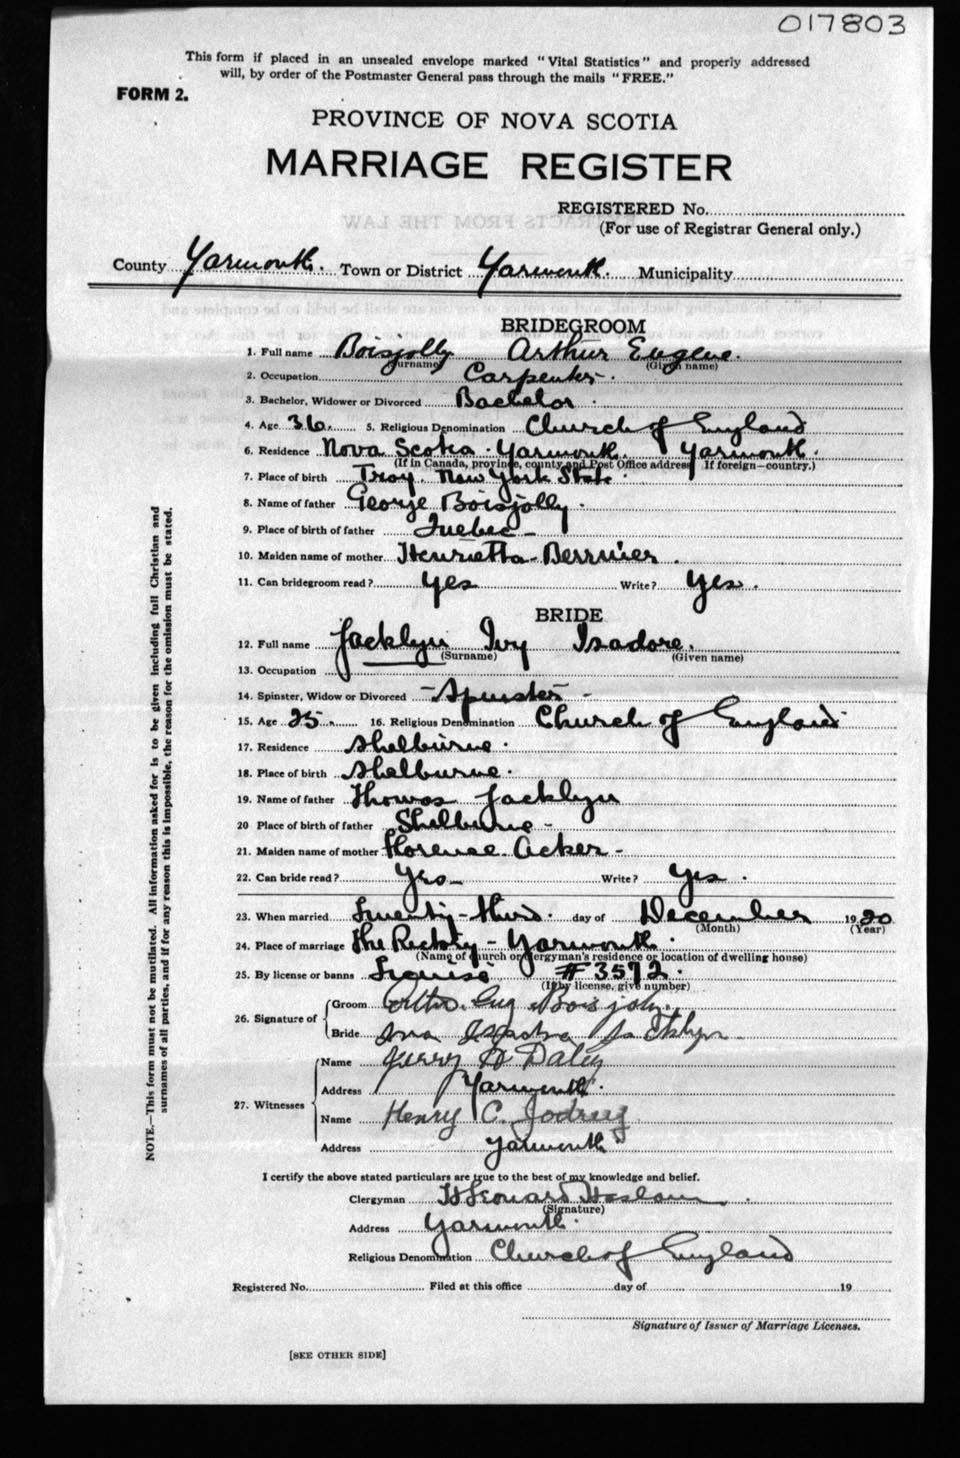 017803
This form if placed in an unsealed envelope marked "Vital Statistics" and properly addressed
will, by order of the Postmaster General pass through the mails "FREE."
FORM 2.
PROVINCE OF NOVA SCOTIA
MARRIAGE REGISTER
REGISTERED No.
(For use of Registrar General only.)
County Yarmouth. Town or District Yarmouth. Municipality
BRIDEGROOM
1. Full name Boisjolly Arthur Eugene.
(Surname) (Given name)
2. Occupation Carpenter.
3. Bachelor, Widower or Divorced Bachelor.
4. Age 36. 5. Religious Denomination Church of England
6. Residence Nova Scotia. Yarmouth. Yarmouth.
(If in Canada, province, county and Post Office address If foreign—country.)
7. Place of birth Troy. New York State.
8. Name of father George Boisjolly.
9. Place of birth of father Quebec -
10. Maiden name of mother Henrietta Bernier.
11. Can bridegroom read? Yes Write? Yes.
BRIDE
12. Full name Jacklyn Ivy Isadore.
(Surname) (Given name)
13. Occupation
14. Spinster, Widow or Divorced - Spinster -
15. Age 25. 16. Religious Denomination Church of England
17. Residence Shelburne.
18. Place of birth Shelburne.
19. Name of father Thomas Jacklyn
20 Place of birth of father Shelburne -
21. Maiden name of mother Florence Acker -
22. Can bride read? Yes - Write? Yes.
23. When married Twenty-third. day of December 1920
(Month) (Year)
24. Place of marriage The Rectory - Yarmouth.
(Name of church or clergyman's residence or location of dwelling house)
25. By license or banns License #3572.
(If by license, give number)
26. Signature of Groom Arthur. Eug Boisjoly.
Bride Isadore Jacklyn
27. Witnesses Name Daley
Address Yarmouth.
Name Henry C. Jodrey
Address Yarmouth
I certify the above stated particulars are true to the best of my knowledge and belief.
Clergyman H Leonard Haslam
(Signature)
Address Yarmouth.
Religious Denomination Church of England
Registered No. Filed at this office day of 19
Signature of Issuer of Marriage Licenses.
[SEE OTHER SIDE]
NOTE.—This form must not be mutilated. All information asked for is to be given including full Christian and
surnames of all parties, and if for any reason this is impossible, the reason for the omission must be stated.